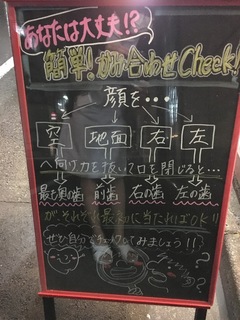 あなたは大丈夫!?
簡単!かみ合わせCheek!
顔を・・・
空 地面 右 左
へ向け力を抜いて口を閉じると…
最も奥の歯 前歯 右の歯 左の歯
が、それぞれ最初に当たればOK!!
ぜひ自分でチェックしてみましょう!!